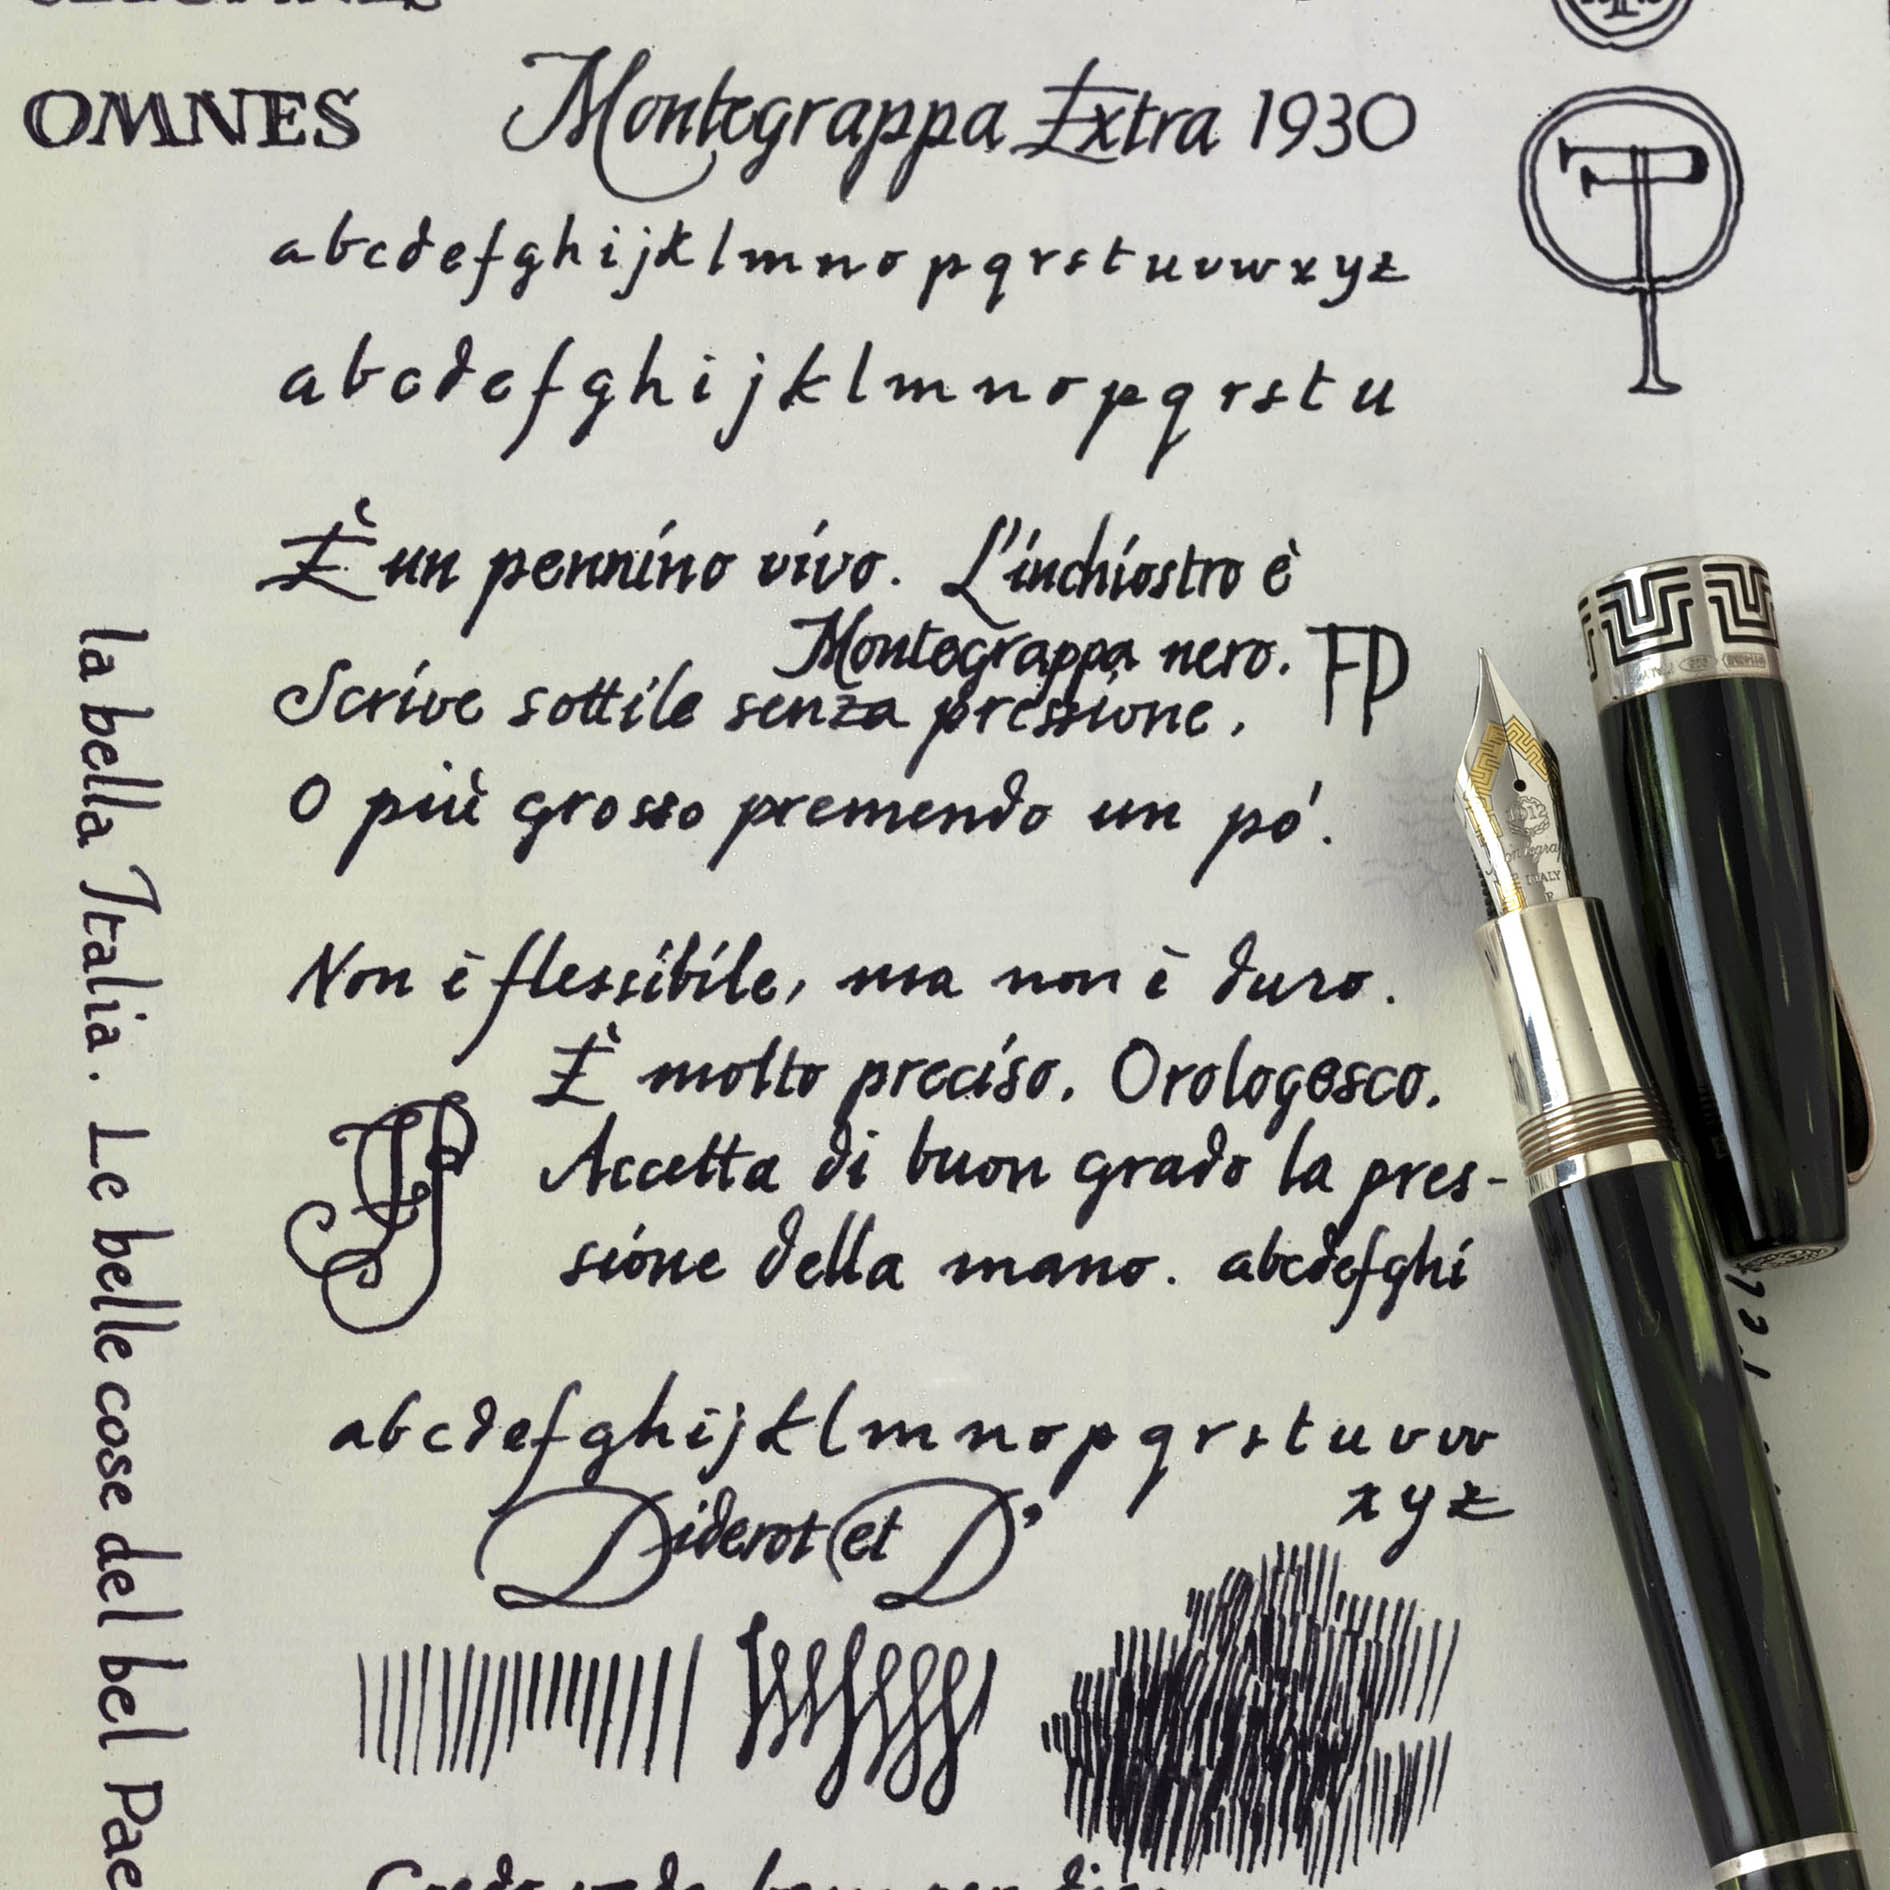 OMNES
Montegrappa Extra 1930
abcdefghijklmnopqrstuvwxyz
abcdefghijklmnopqrstu
È un pennino vivo. L'inchiostro è
Montegrappa nero.
FP
Scrive sottile senza pressione,
O più grosso premendo un pó.
Non è flessibile, ma non è duro.
È molto preciso. Orologesco.
Accetta di buon grado la pres-
sione della mano. abcdefghi
abcdefghijklmnopqrstuvw
xyz
Diderot et D'
la bella Italia. Le belle cose del bel Pae
1912
ITALY
F